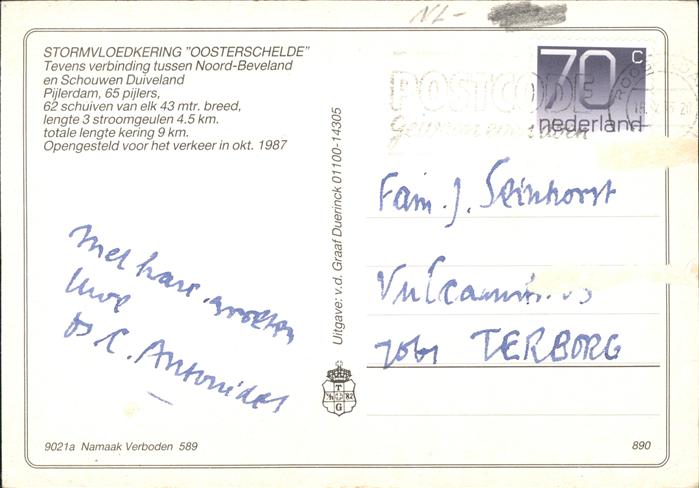 NL-
STORMVLOEDKERING "OOSTERSCHELDE"
Tevens verbinding tussen Noord-Beveland
en Schouwen Duiveland
Pijlerdam, 65 pijlers,
62 schuiven van elk 43 mtr. breed,
lengte 3 stroomgeulen 4.5 km.
totale lengte kering 9 km.
Opengesteld voor het verkeer in okt. 1987
70 c
nederland
POSTCODE
gewoon
Uitgave: v.d. Graaf Duerinck 01100-14305
Met hart. groeten
Uwe
ds C. Antonides
Fam. J. Seinhorst
7061 TERBORG
T
G
9021a Namaak Verboden 589
890